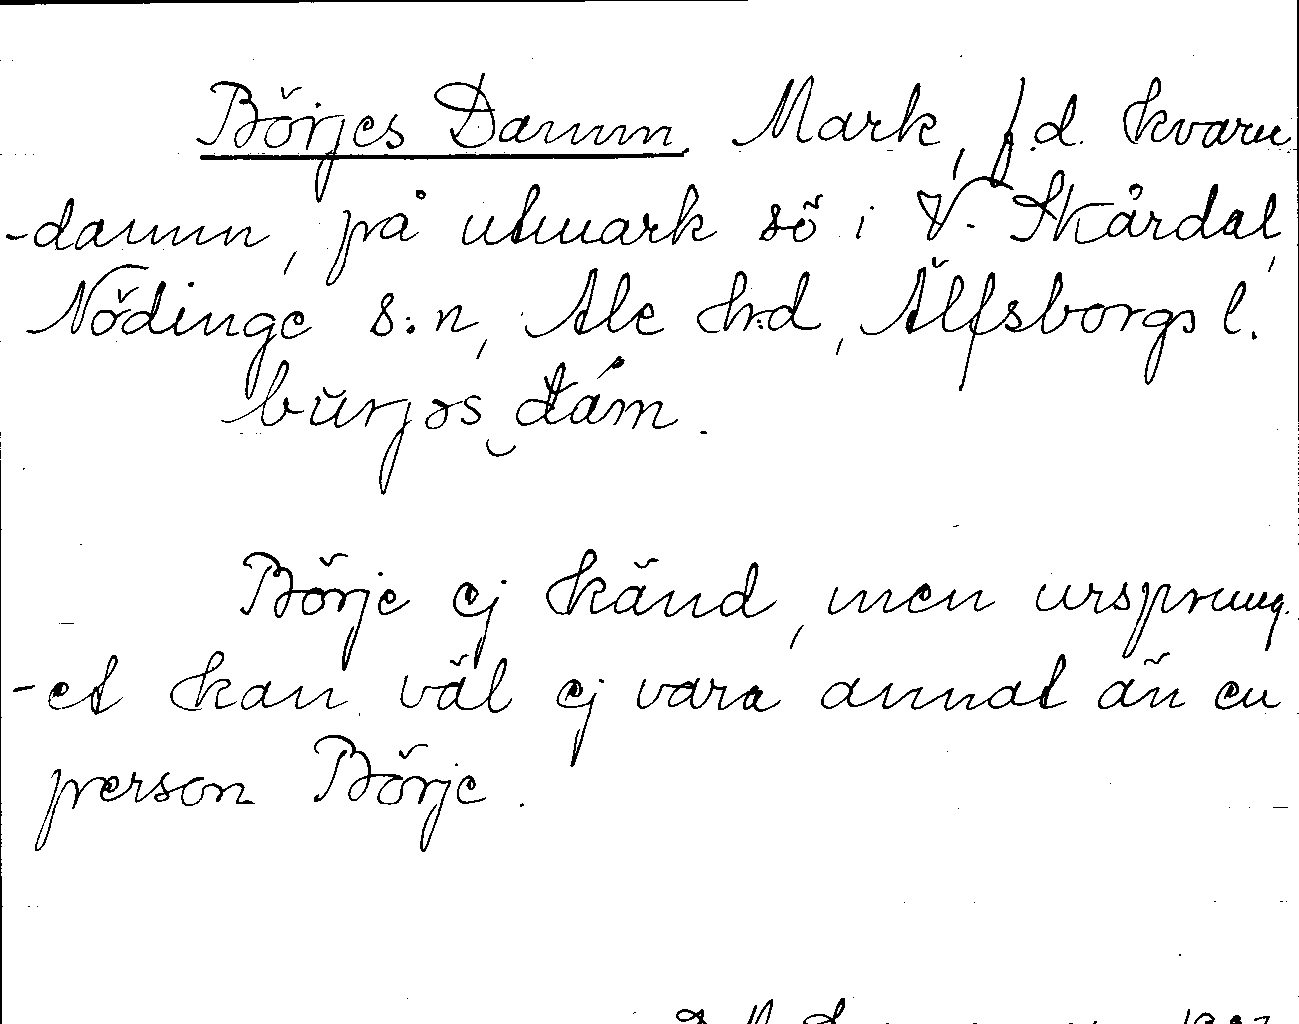 Börjes Damm. Mark, f.d. kvarn
-damm, på utmark sö i V. Skårdal,
Nödinge s:n, Ale h:d, Älfsborgs l.
bŭrjəs dám.
Börje ej känd, men ursprung-
-et kan väl ej vara annat än en
person Börje.